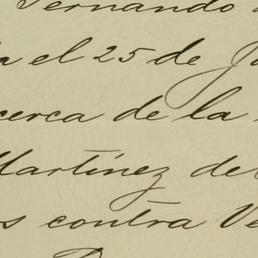 Fernando
el 25 de
cerca de la
Martínez de
contra